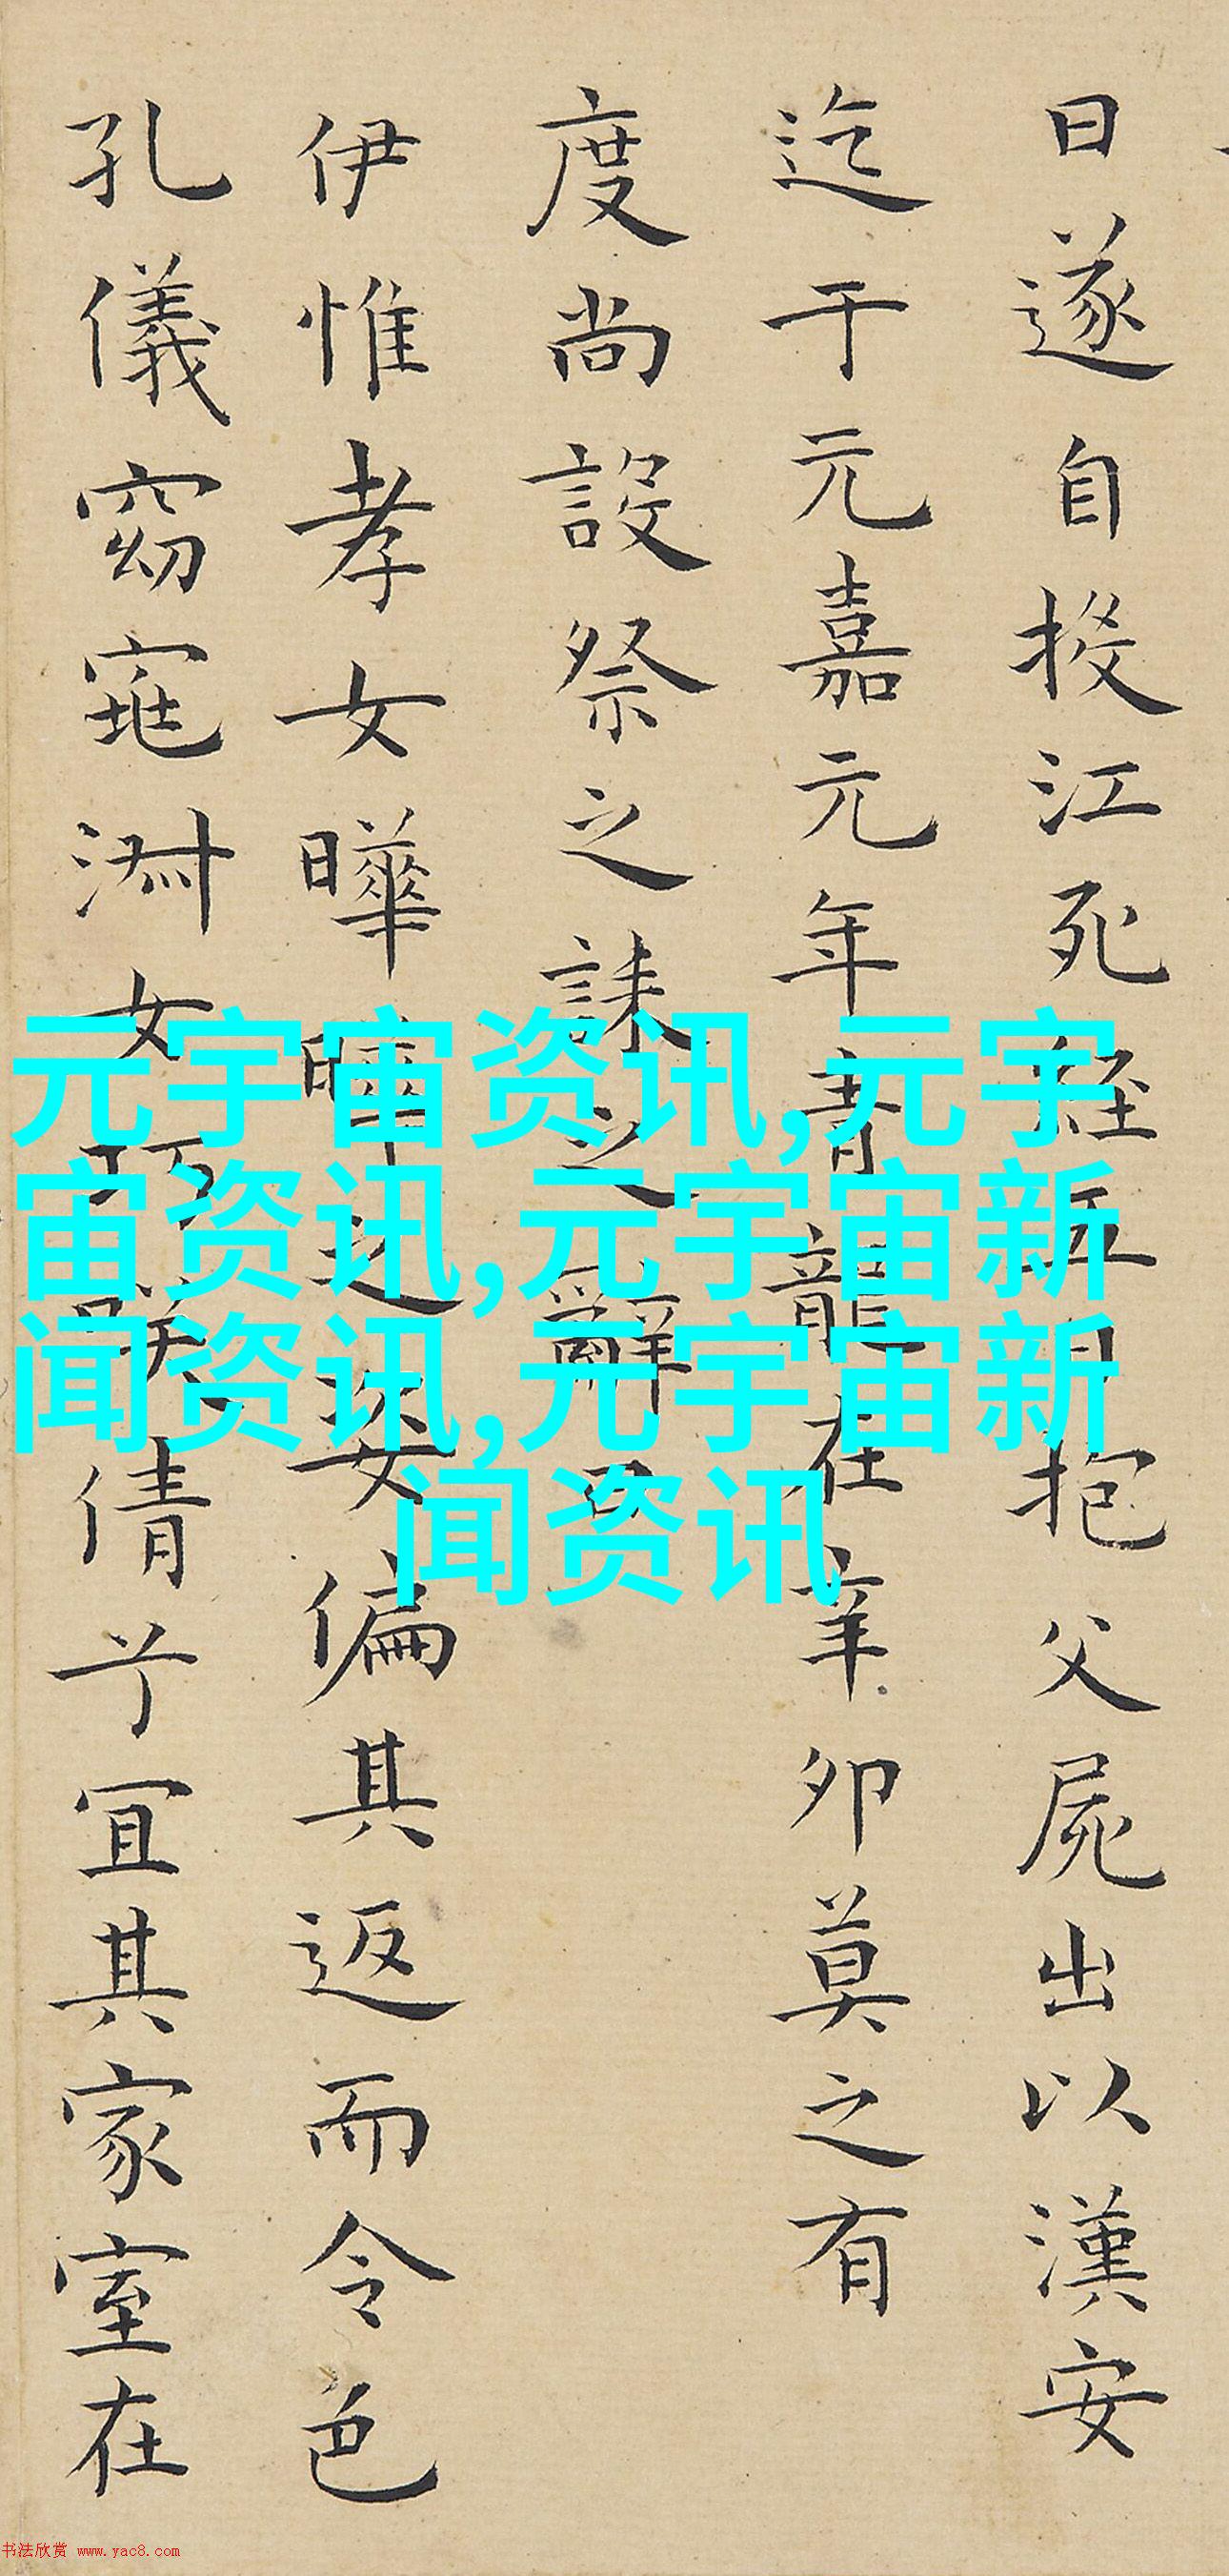 日遂自投江死經五日抱父屍出以漢安
迄于元嘉元年青龍在辛卯莫之有
度尚設祭之誄之辭曰
伊惟孝女曄曄之姿偏其返而令色
孔儀窈窕淑女巧咲倩兮宜其家室在
元宇宙资讯,元宇
宙资讯,元宇宙新
闻资讯,元宇宙新
闻资讯
书法欣赏 www.yac8.com